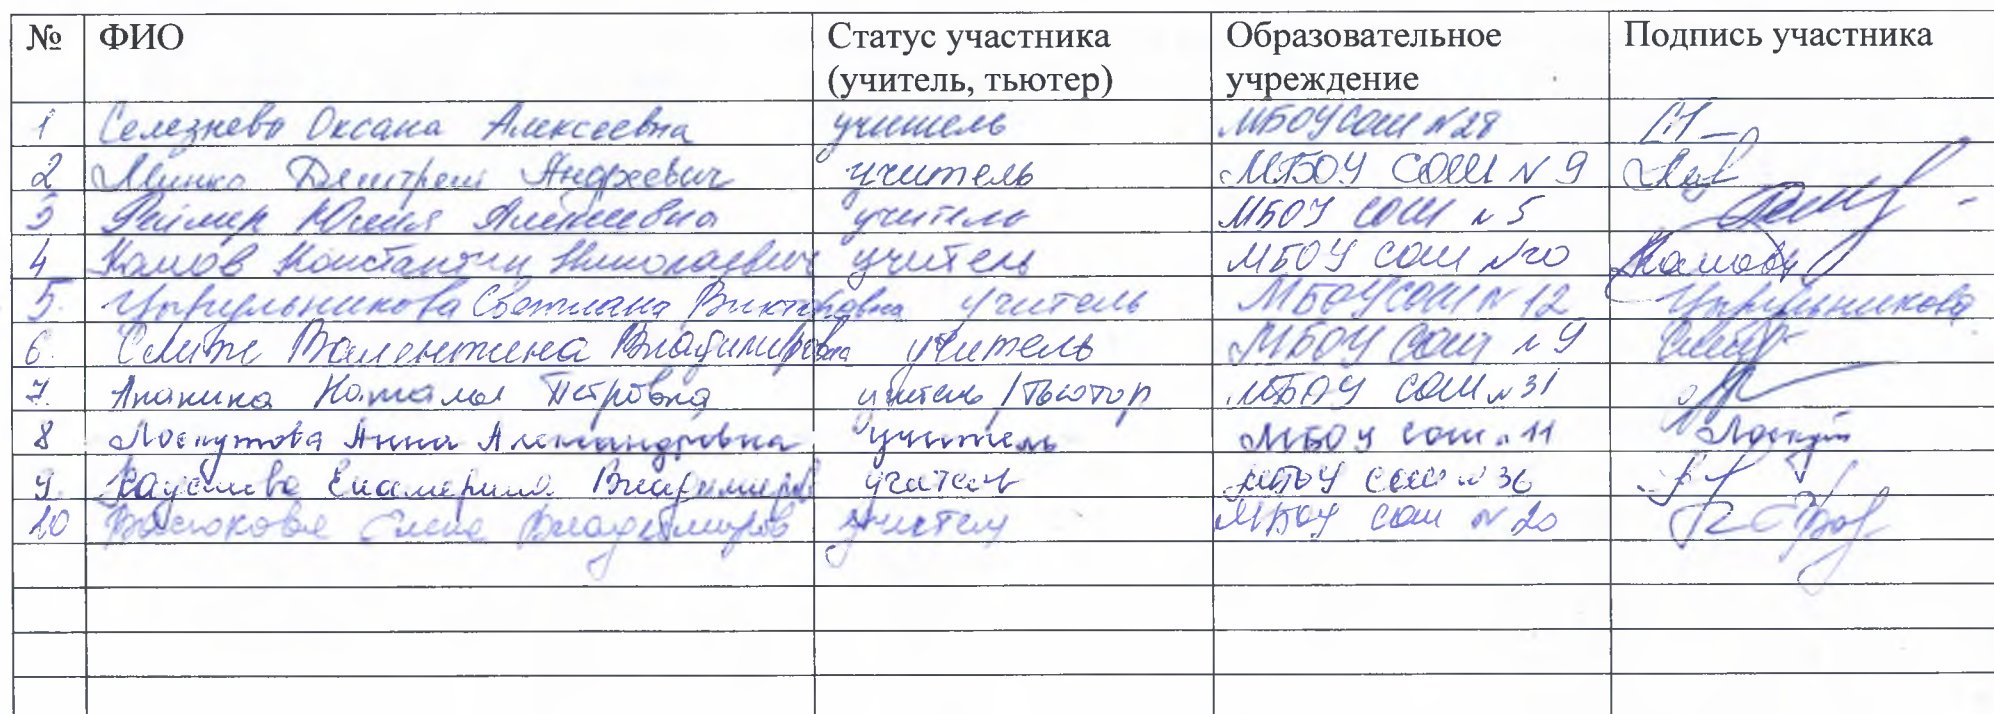 № ФИО Статус участника (учитель, тьютер) Образовательное учреждение Подпись участника
1 Селезнева Оксана Алексеевна учитель МБОУ СОШ №28
2 Минко Дмитрий Андреевич учитель МБОУ СОШ № 9
3 Юлия Алексеевна учитель МБОУ СОШ № 5
4 Камов Константин Николаевич учитель МБОУ СОШ №20
5. Цырульникова Светлана Викторовна учитель МБОУ СОШ № 12 Цырульникова
6. Валентина Владимировна учитель МБОУ СОШ № 9
7. Апанина Наталья Петровна учитель / тьютор МБОУ СОШ № 31
8 Лоскутова Анна Александровна учитель МБОУ СОШ № 11 Лоскут
9. Екатерина Владимиров учитель МБОУ СОШ № 36
10 Васюкова Елена Владимиров учитель МБОУ СОШ № 20